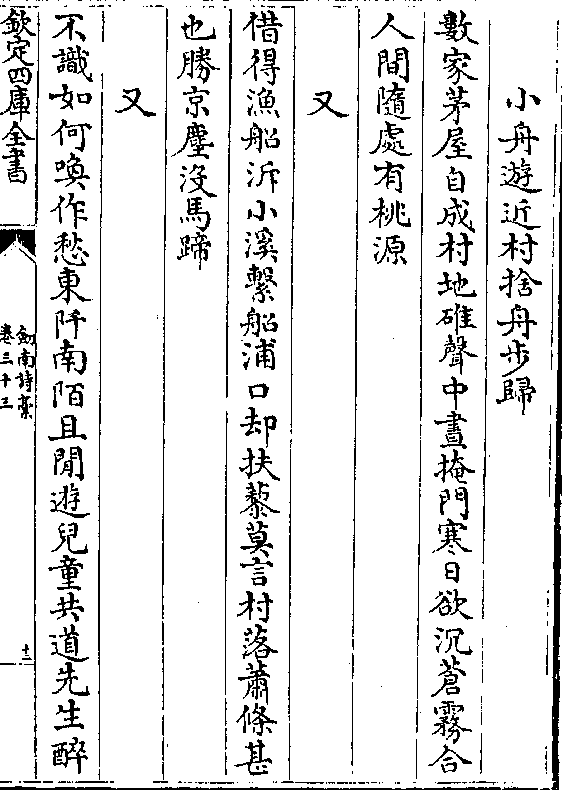 小舟遊近村捨舟步歸
數家茅屋自成村地碓聲中晝掩門寒日欲沉蒼霧合
人間隨處有桃源
又
借得漁船泝小溪繫船浦口却扶藜莫言村落蕭條甚
也勝京塵沒馬蹄
又
不識如何喚作愁東阡南陌且閒遊兒童共道先生醉
欽定四庫全書
劍南詩藁
卷三十三
十二